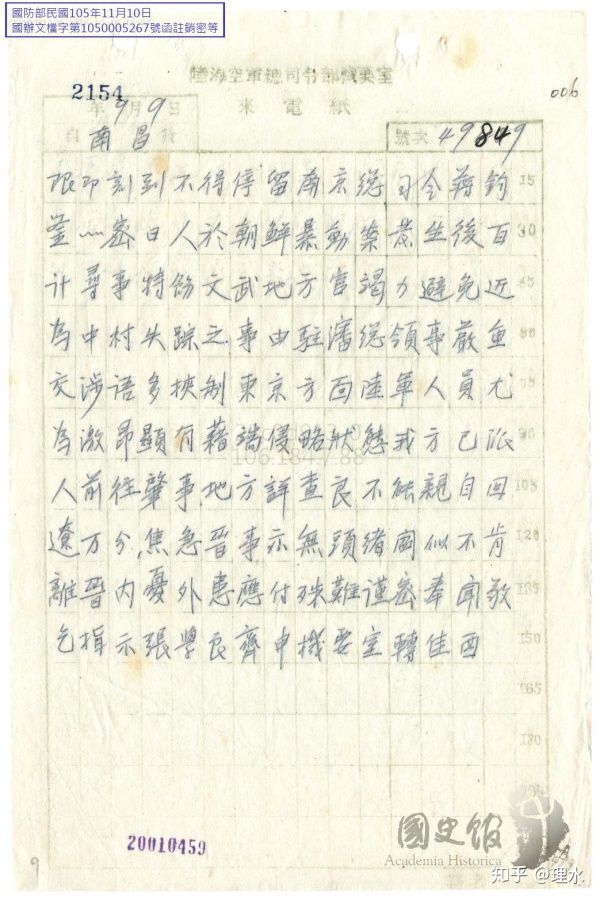 國防部民國105年11月10日
國辦文檔字第1050005267號函註銷密等
陸海空軍總司令部機要室
2154
006
年9月9日
來電紙
自南昌發
號次 49849
限即刻到不得停留南京總司令蔣鈞 15
鉴〰密日人於朝鮮暴動案發生後百 30
計尋事特飭文武地方官竭力避免近 45
為中村失踪之事由駐瀋總領事嚴重 60
交涉語多挾制東京方面陸軍人員尤 75
為激昂顯有藉端侵略狀態我方已派 90
106.184.7.88
人前往肇事地方詳查良不能親自回 105
遼万分焦急晉事亦無頭緒閻似不肯 120
離晉内憂外患應付殊難谨密奉聞敬 135
乞指示張學良齊申機要室轉佳酉 150
165
180
20010459
國史館
Academia Historica
知乎 @理水